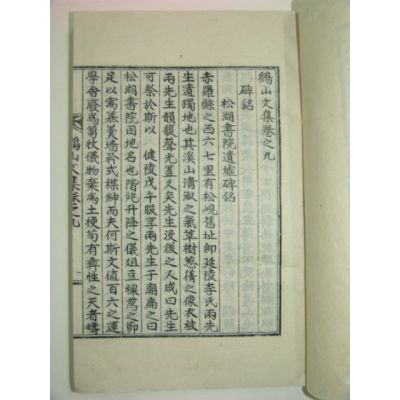 鶴山文集卷之九
碑銘
松湖書院遺墟碑銘
赤羅縣之西六七里有松峴舊址卽延陵李氏兩先
生遺躅地也其溪山清淑之氣草樹葱蒨之像衣被
兩先生韻馥聲光蓋久矣先生沒後之人咸曰先生
可祭於斯以 健陵戊午腏享兩先生于廟扁之曰
松湖書院名以地也階戺升降之儀俎豆薦之
足以寓慕羹墻矜式紳而夫何斯文値百六之運
學舍廢爲蒭牧儀物棄爲土梗苟有彝性之天者疇
鶴山文集卷之九 一